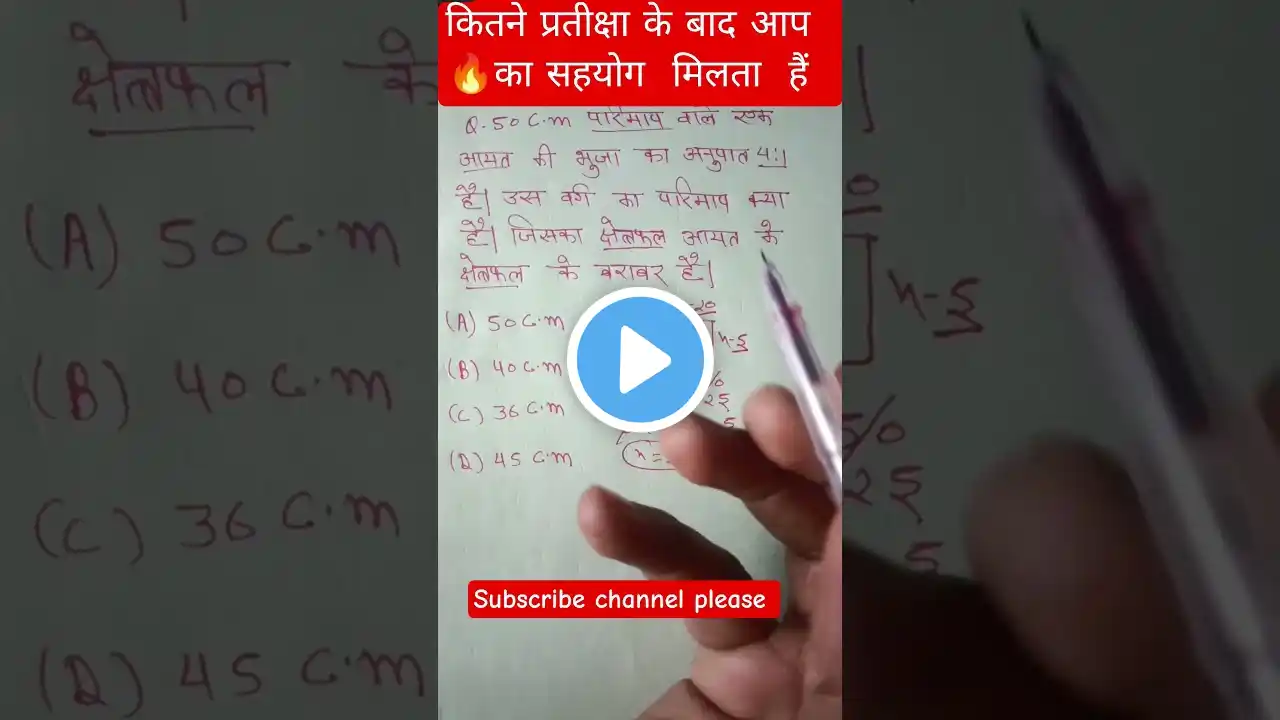 कितने प्रतीक्षा के बाद आप
🔥का सहयोग मिलता हैं
Q. 50 C.m परिमाप वाले एक
आयत की भुजा का अनुपात 4:1
है| उस वर्ग का परिमाप क्या
है| जिसका क्षेत्रफल आयत के
क्षेत्रफल के बराबर है|
(A) 50 C.m
(B) 40 C.m
(C) 36 C.m
(D) 45 C.m
x-5
Subscribe channel please
क्षेत्रफल के
(A) 50 C.m
(B) 40 C.m
(C) 36 C.m
(D) 45 C.m
x-5